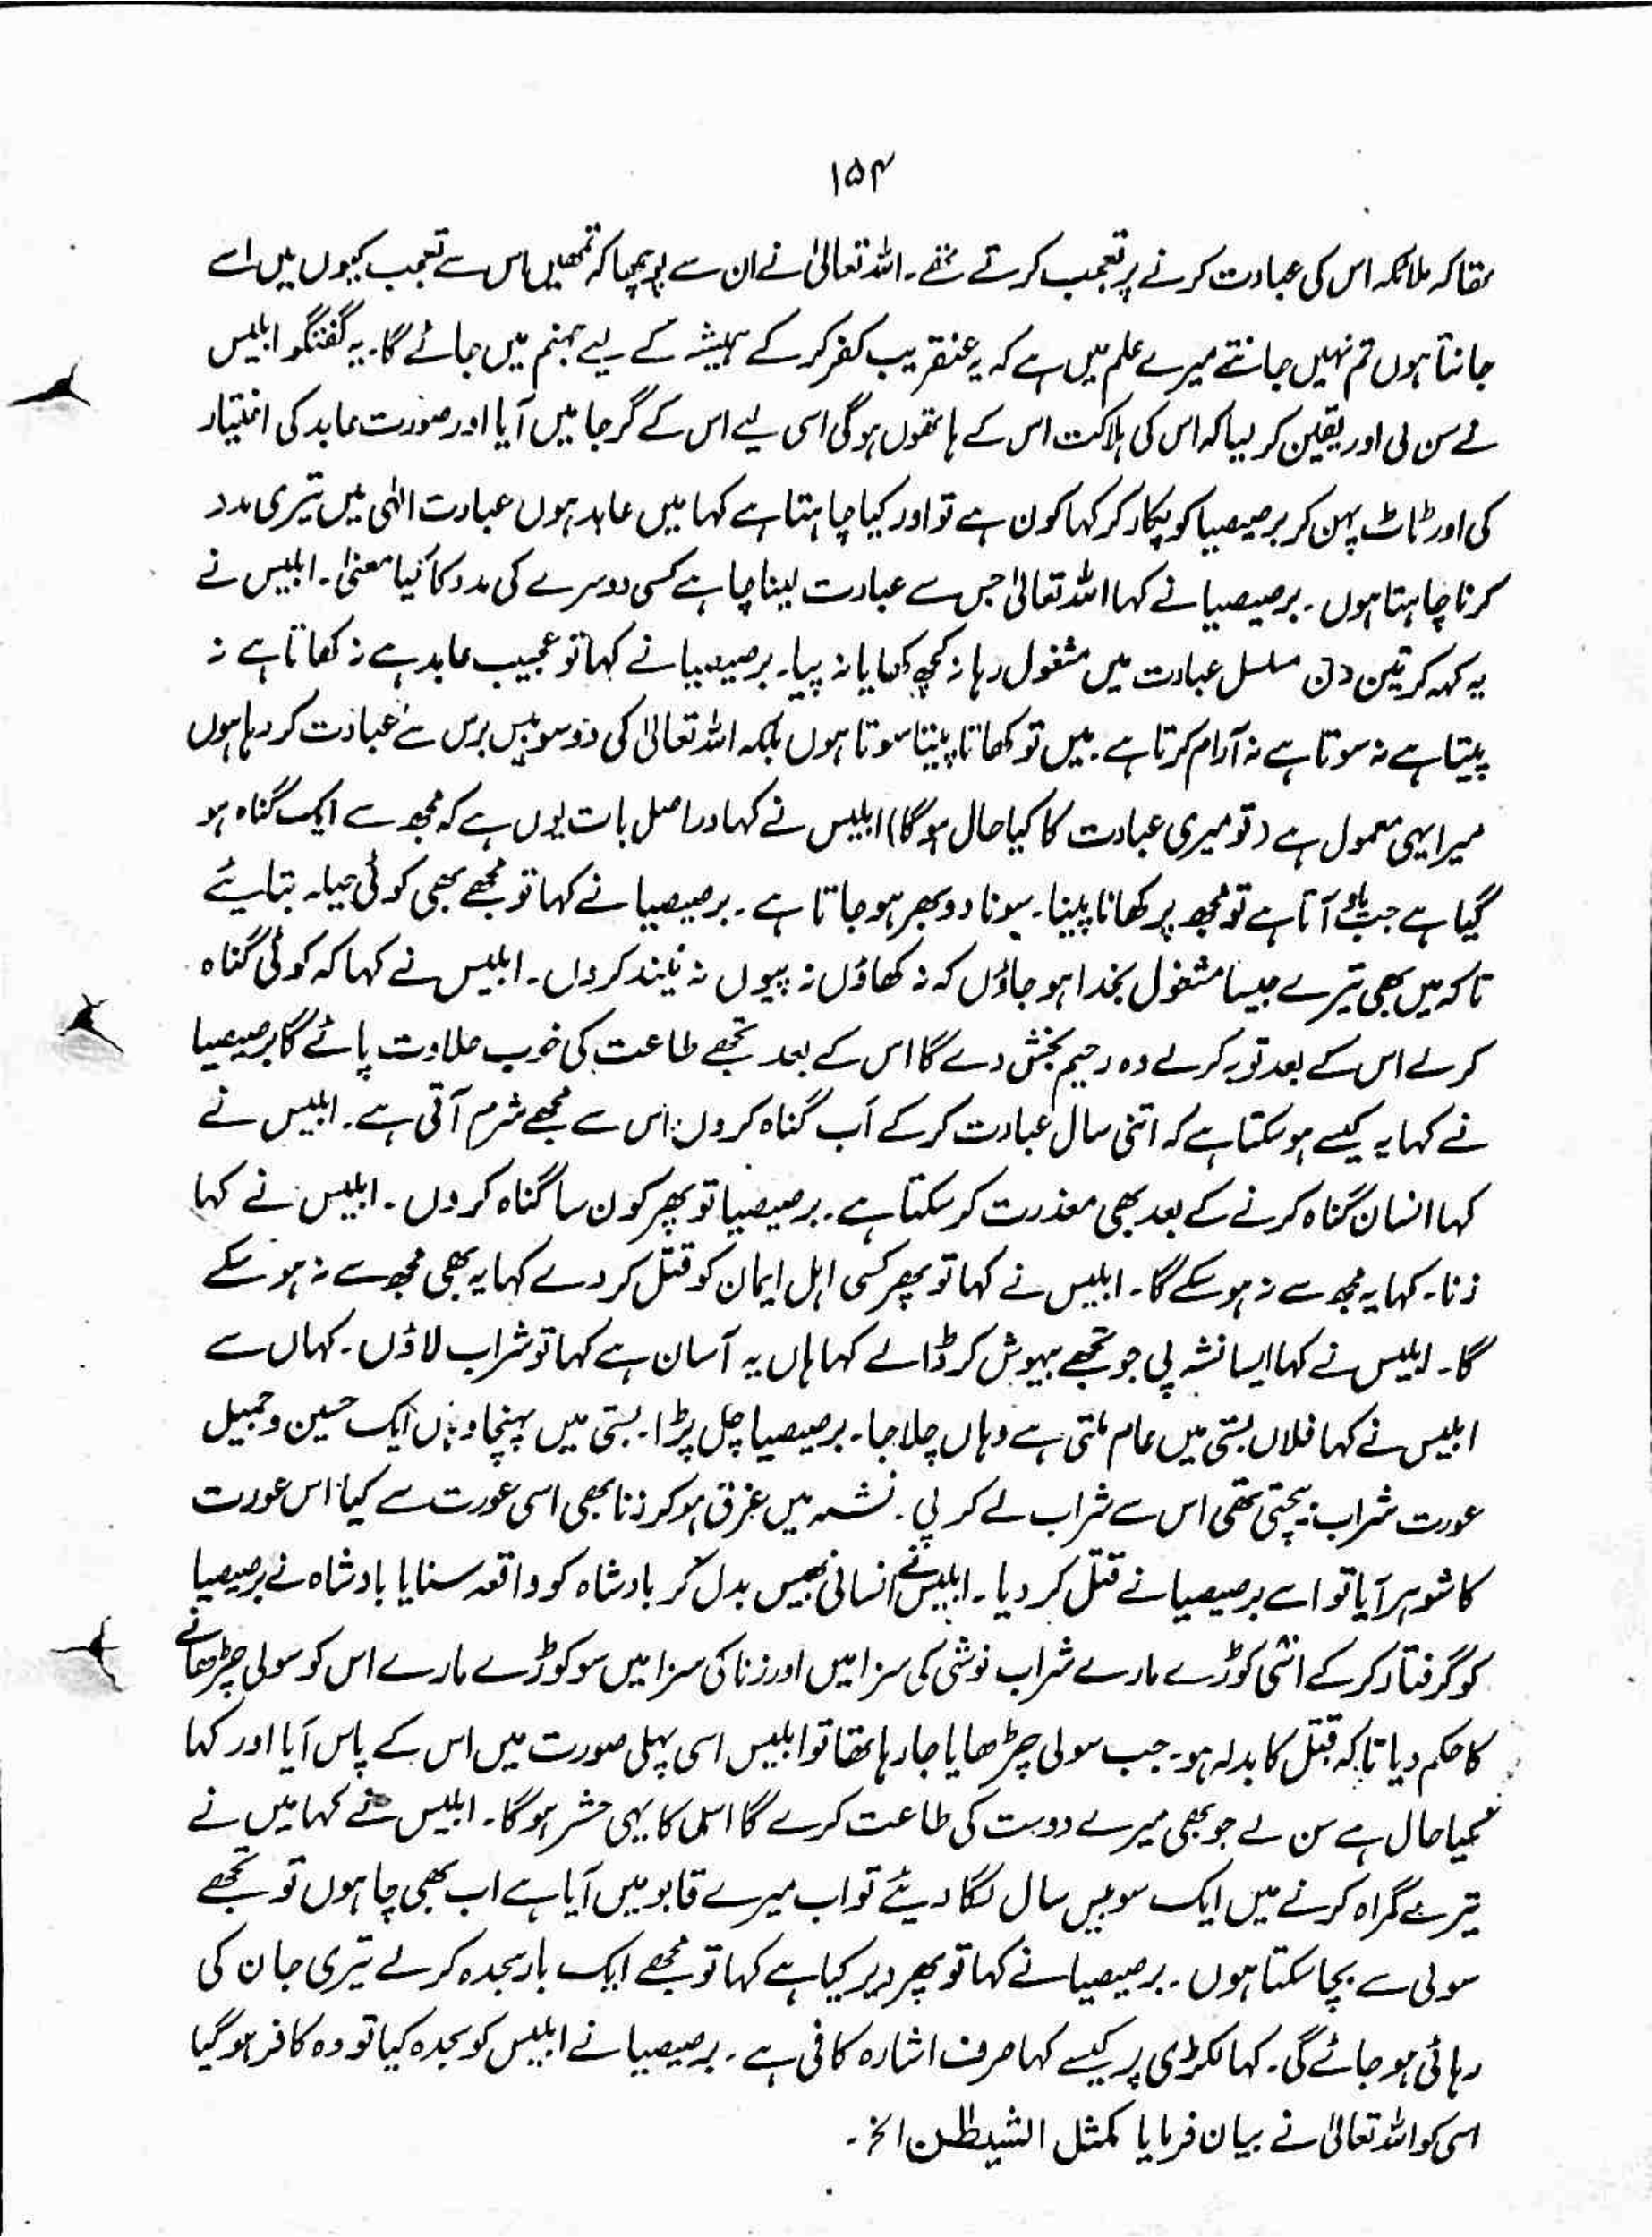 ۱۵۴
تھا کہ ملائکہ اس کی عبادت کرنے پر تعجب کرتے تھے۔ اللہ تعالیٰ نے ان سے پوچھا کہ تمھیں اس سے تعجب کیوں میں اسے
جانتا ہوں تم نہیں جانتے میرے علم میں ہے کہ یہ عنقریب کفر کر کے ہمیشہ کے لیے جہنم میں جائے گا۔ یہ گفتگو ابلیس
نے سن لی اور یقین کر لیا کہ اس کی ہلاکت اس کے ہاتھوں ہوگی اسی لیے اس کے گرجا میں آیا اور صورت عابد کی اختیار
کی اور ٹاٹ پہن کر برصیصیا کو پکار کر کہا کون ہے تو اور کیا چاہتا ہے کہا میں عابد ہوں عبادت الٰہی میں تیری مدد
کرنا چاہتا ہوں۔ برصیصیا نے کہا اللہ تعالیٰ جس سے عبادت لینا چاہے کسی دوسرے کی مدد کا کیا معنیٰ۔ ابلیس نے
یہ کہہ کر تین دن مسلسل عبادت میں مشغول رہا نہ کچھ کھایا نہ پیا۔ برصیصیا نے کہا تو عجیب عابد ہے نہ کھاتا ہے نہ
پیتا ہے نہ سوتا ہے نہ آرام کرتا ہے۔ میں تو کھاتا پیتا سوتا ہوں بلکہ اللہ تعالیٰ کی دو سو بیس برس سے عبادت کر رہا ہوں
میرا یہی معمول ہے (تو میری عبادت کا کیا حال ہوگا) ابلیس نے کہا دراصل بات یوں ہے کہ مجھ سے ایک گناہ ہو
گیا ہے جب یاد آتا ہے تو مجھ پر کھانا پینا۔ سونا دوبھر ہو جاتا ہے۔ برصیصیا نے کہا تو مجھے بھی کوئی حیلہ بتایئے
تاکہ میں بھی تیرے جیسا مشغول بخدا ہو جاؤں کہ نہ کھاؤں نہ پیوں نہ نیند کروں۔ ابلیس نے کہا کہ کوئی گناہ
کرلے اس کے بعد توبہ کرلے وہ رحیم بخش دے گا اس کے بعد تجھے طاعت کی خوب حلاوت پائے گا برصیصیا
نے کہا یہ کیسے ہوسکتا ہے کہ اتنی سال عبادت کر کے اَب گناہ کردوں اس سے مجھے شرم آتی ہے۔ ابلیس نے
کہا انسان گناہ کرنے کے بعد بھی معذرت کرسکتا ہے۔ برصیصیا تو پھر کون سا گناہ کروں۔ ابلیس نے کہا
زنا۔ کہا یہ مجھ سے نہ ہوسکے گا۔ ابلیس نے کہا تو پھر کسی اہل ایمان کو قتل کردے کہا یہ بھی مجھ سے نہ ہو سکے
گا۔ ابلیس نے کہا ایسا نشہ پی جو تجھے بیہوش کرڈالے کہا ہاں یہ آسان ہے کہا تو شراب لاؤں۔ کہاں سے
ابلیس نے کہا فلاں بستی میں عام ملتی ہے وہاں چلا جا۔ برصیصیا چل پڑا۔ بستی میں پہنچا وہاں ایک حسین و جمیل
عورت شراب بیچتی تھی اس سے شراب لے کر پی۔ نشہ میں غرق ہوکر زنا بھی اسی عورت سے کیا اس عورت
کا شوہر آیا تو اسے برصیصیا نے قتل کر دیا۔ ابلیس نے انسانی بھیس بدل کر بادشاہ کو واقعہ سنایا بادشاہ نے برصیصیا
کو گرفتار کر کے اسّی کوڑے مارے شراب نوشی کی سزا میں اور زنا کی سزا میں سو کوڑے مارے اس کو سولی چڑھانے
کا حکم دیا تاکہ قتل کا بدلہ ہو۔ جب سولی چڑھایا جا رہا تھا تو ابلیس اسی پہلی صورت میں اس کے پاس آیا اور کہا
کیا حال ہے سن لے جو بھی میرے دوست کی طاعت کرے گا اس کا یہی حشر ہوگا۔ ابلیس نے کہا میں نے
تیرے گمراہ کرنے میں ایک سو بیس سال لگا دیئے تو اب میرے قابو میں آیا ہے اب بھی چاہوں تو تجھے
سولی سے بچا سکتا ہوں۔ برصیصیا نے کہا تو پھر دیر کیا ہے کہا تو مجھے ایک بار سجدہ کرلے تیری جان کی
رہائی ہو جائے گی۔ کہا لکڑی پر کیسے کہا صرف اشارہ کافی ہے۔ برصیصیا نے ابلیس کو سجدہ کیا تو وہ کافر ہوگیا
اسی کو اللہ تعالیٰ نے بیان فرمایا کمثل الشیطٰن الخ۔